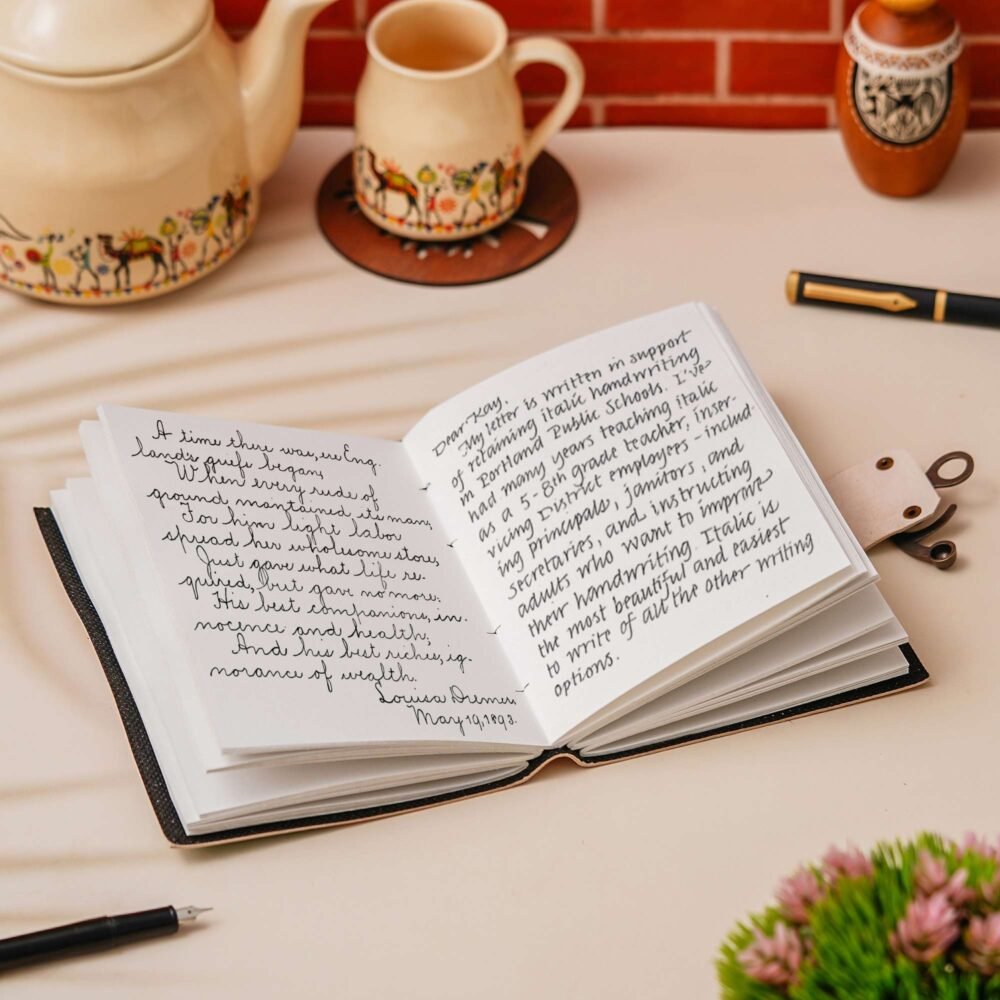 A time there was, ere Eng-
land's griefs began,
When every rude of
ground maintained its man;
For him light labor
spread her wholesome store,
Just gave what life re-
quired, but gave no more;
His best companions, in-
nocence and health;
And his best riches, ig-
norance of wealth.
Louisa
May 19, 1893.
Dear Kay,
My letter is written in support
of retaining italic handwriting
in Portland Public Schools. I've
had many years teaching italic
as a 5-8th grade teacher, inser-
vicing District employees - includ-
ing principals, janitors, and
secretaries, and instructing
adults who want to improve
their handwriting. Italic is
the most beautiful and easiest
to write of all the other writing
options.